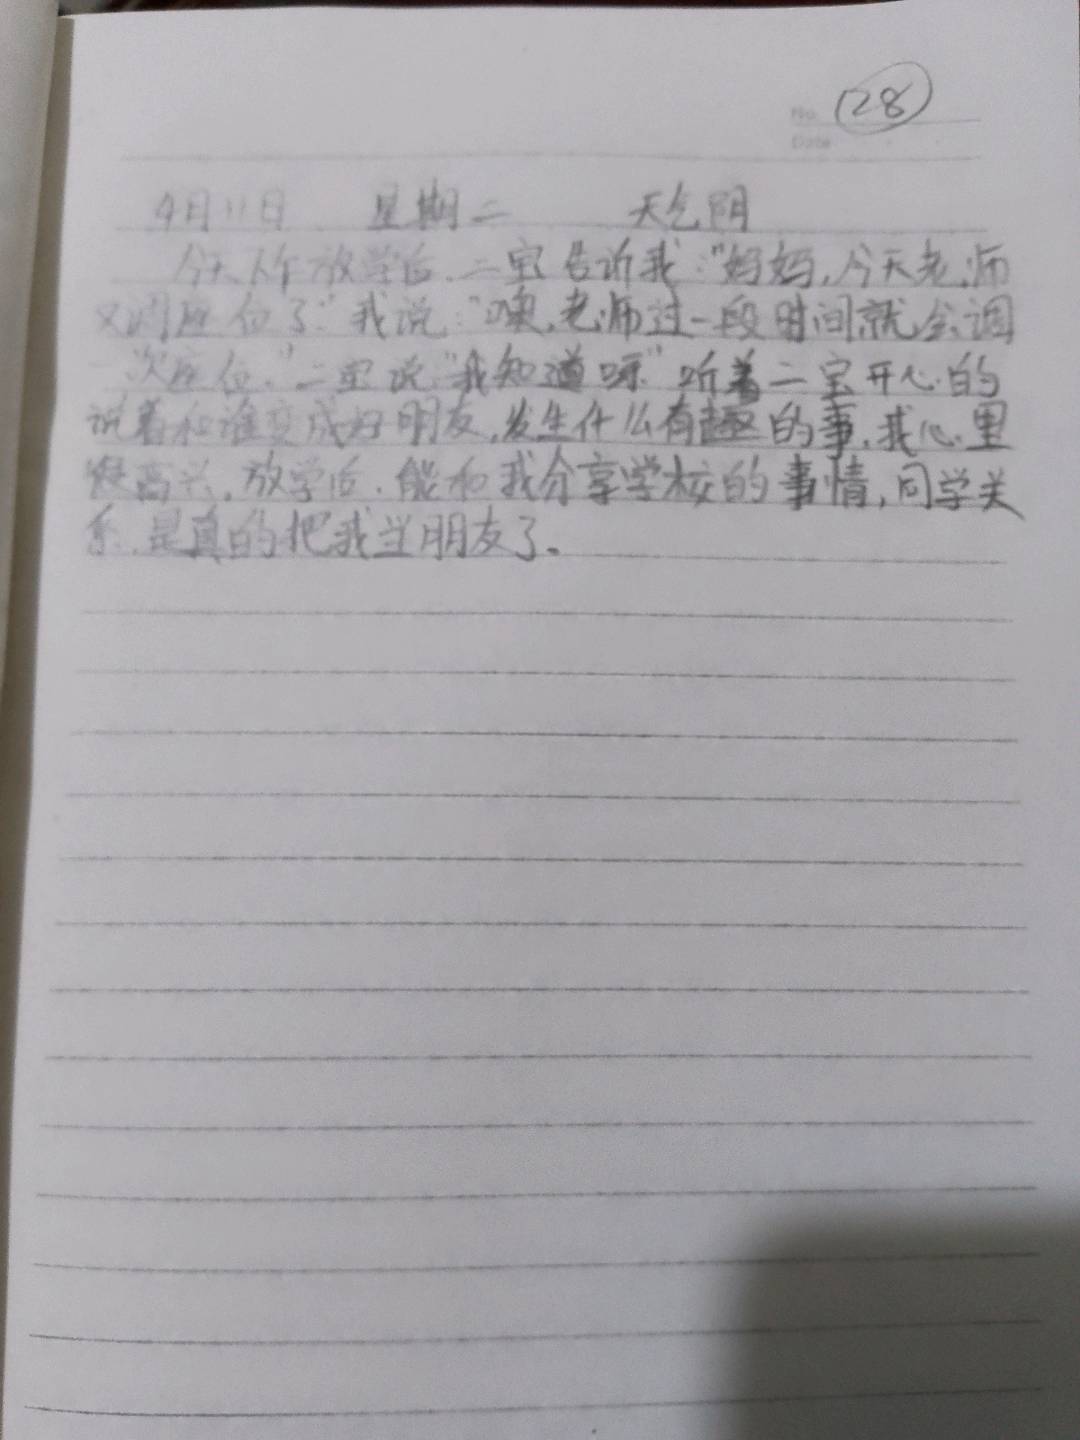 No 28
Date
4月11日 星期二 天气阴
今天下午放学后,二宝告诉我:"妈妈,今天老师
又调座位了"我说:"噢,老师过一段时间就会调
一次座位。"二宝说"我知道呀"听着二宝开心的
说着和谁变成好朋友,发生什么有趣的事,我心里
很高兴,放学后,能和我分享学校的事情,同学关
系,是真的把我当朋友了。